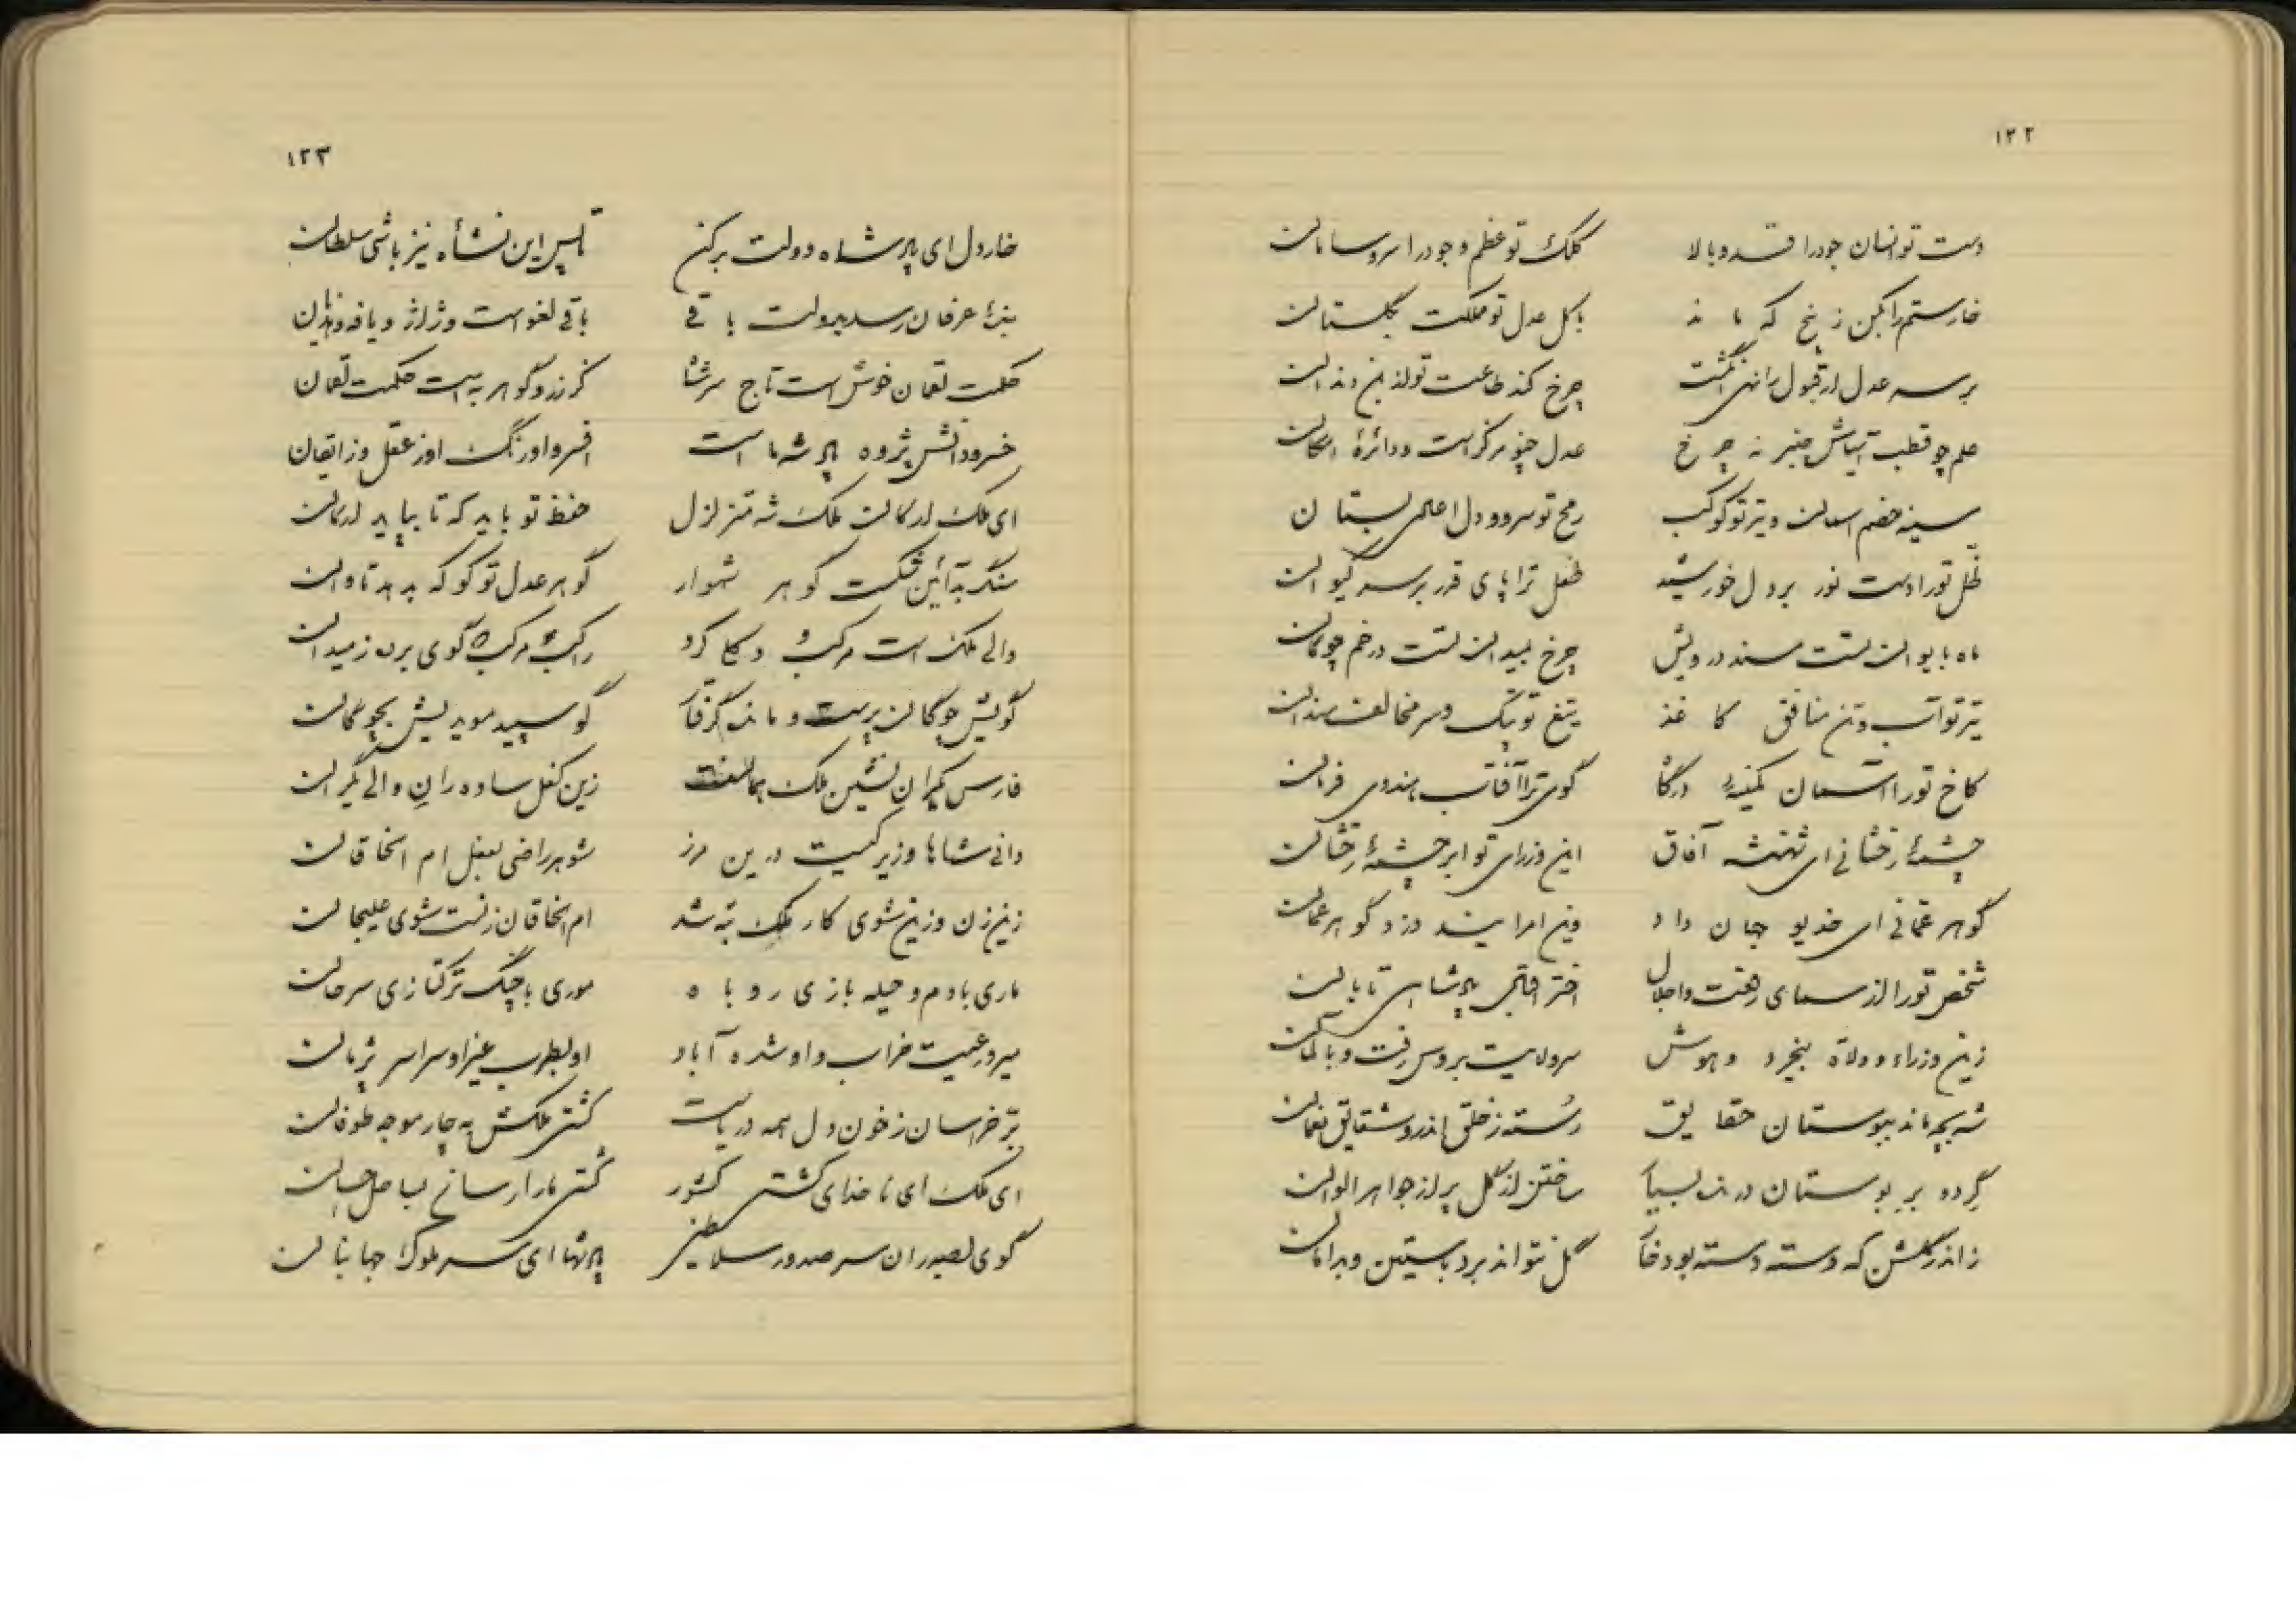 ۱۲۲
دست تو انسان جود را قد و بالا کلک تو عظم وجود را سر و سامان
خار ستم را بکن ز بیخ که ماند با گل عدل تو مملکت بگلستان
بر سه عدل ار قبول رانهی انگشت چرخ کند طاعت تو از بن دندان
علم چو قطب آسیاش چنبر نه چرخ عدل چو مرکز است و دائرهٔ امکان
سینه خصم آسمان و تیر تو کوکب رمح تو سرو و دل اعادی بستان
ظل تو را دست نور بر دل خورشید طفل ترا پای قدر بر سر کیوان
ماه بایوان تست مسند درویش چرخ بمیدان تست در خم چوگان
تیر تو آتش و تن منافق کاغذ تیغ تو پتک و سر مخالف سندان
کاخ تو را آسمان کمینه درگاه گوی ترا آفتاب هندوی فرمان
چشمهٔ رخشانی ای شهنشه آفاق این وزرای تو ابر چشمهٔ رخشان
گوهر عمانی ای خدیو جهان دار وین امرایند دزد گوهر عمان
شخص تو را از سمای رفعت و اجلال اختر اقبال پادشاهی تابان
زین وزراء و ولاة بیخرد و هوش سر ولایت بروس رفت و بآلمان
شه بچه ماند ببوستان حقایق رسته ز خلق اندرو شقایق نعمان
گرده بر بوستان درند بسیار ساختن از گل پر از جواهر الوان
زاندر گلشن که دسته دسته بود خار گل نتواند برد بآستین و بدامان
۱۲۳
خار دل ای پادشاه دولت برکن تا پس این نشأه نیز باشی سلطان
بندهٔ عرفان رسد بدولت باقی باقی لغو است و ژاژ و یافه و هذیان
حکمت لقمان خوش است تاج سر شاه کز زر و گوهر به است حکمت لقمان
خسرو دانش پژوه پادشه ما است افسر و اورنگ او ز عقل و ز ایقان
ای ملک ارکان ملک شه متزلزل حفظ تو باید که تا بپاید ارکان
سنگ بد آئین شکست گوهر شهوار گوهر عدل تو کو که بدهد تاوان
والی ملک است مرکب و کجا کرد راکب مرکب گوی برد ز میدان
گویش چوگان پرست و ماند گرفتار گو سپید موید یش بچوگان
فارس یکران نشین ملک بمالفت زین کفل ساده ران والی یکران
دانی شاها وزیر کیست درین مرز شوهر راضی بفعل ام الخاقان
زین زن و زین شوی کار ملک تبه شد ام الخاقان زنست شوی علیجان
ماری با دم و حیله بازی روباه موری با چنگ ترکتازی سرحان
میر و رعیت خراب و او شده آباد او بطرب غیر او سراسر پژمان
بر خراسان ز خون دل همه دریاست کشتی ملکش به چار موجه طوفان
ای ملک ای ناخدای کشتی کشور کشتی ما را رسان بساحل احسان
گوی بصدر ان سر صدور سلاطین پادشها ای سر ملوک جهانبان